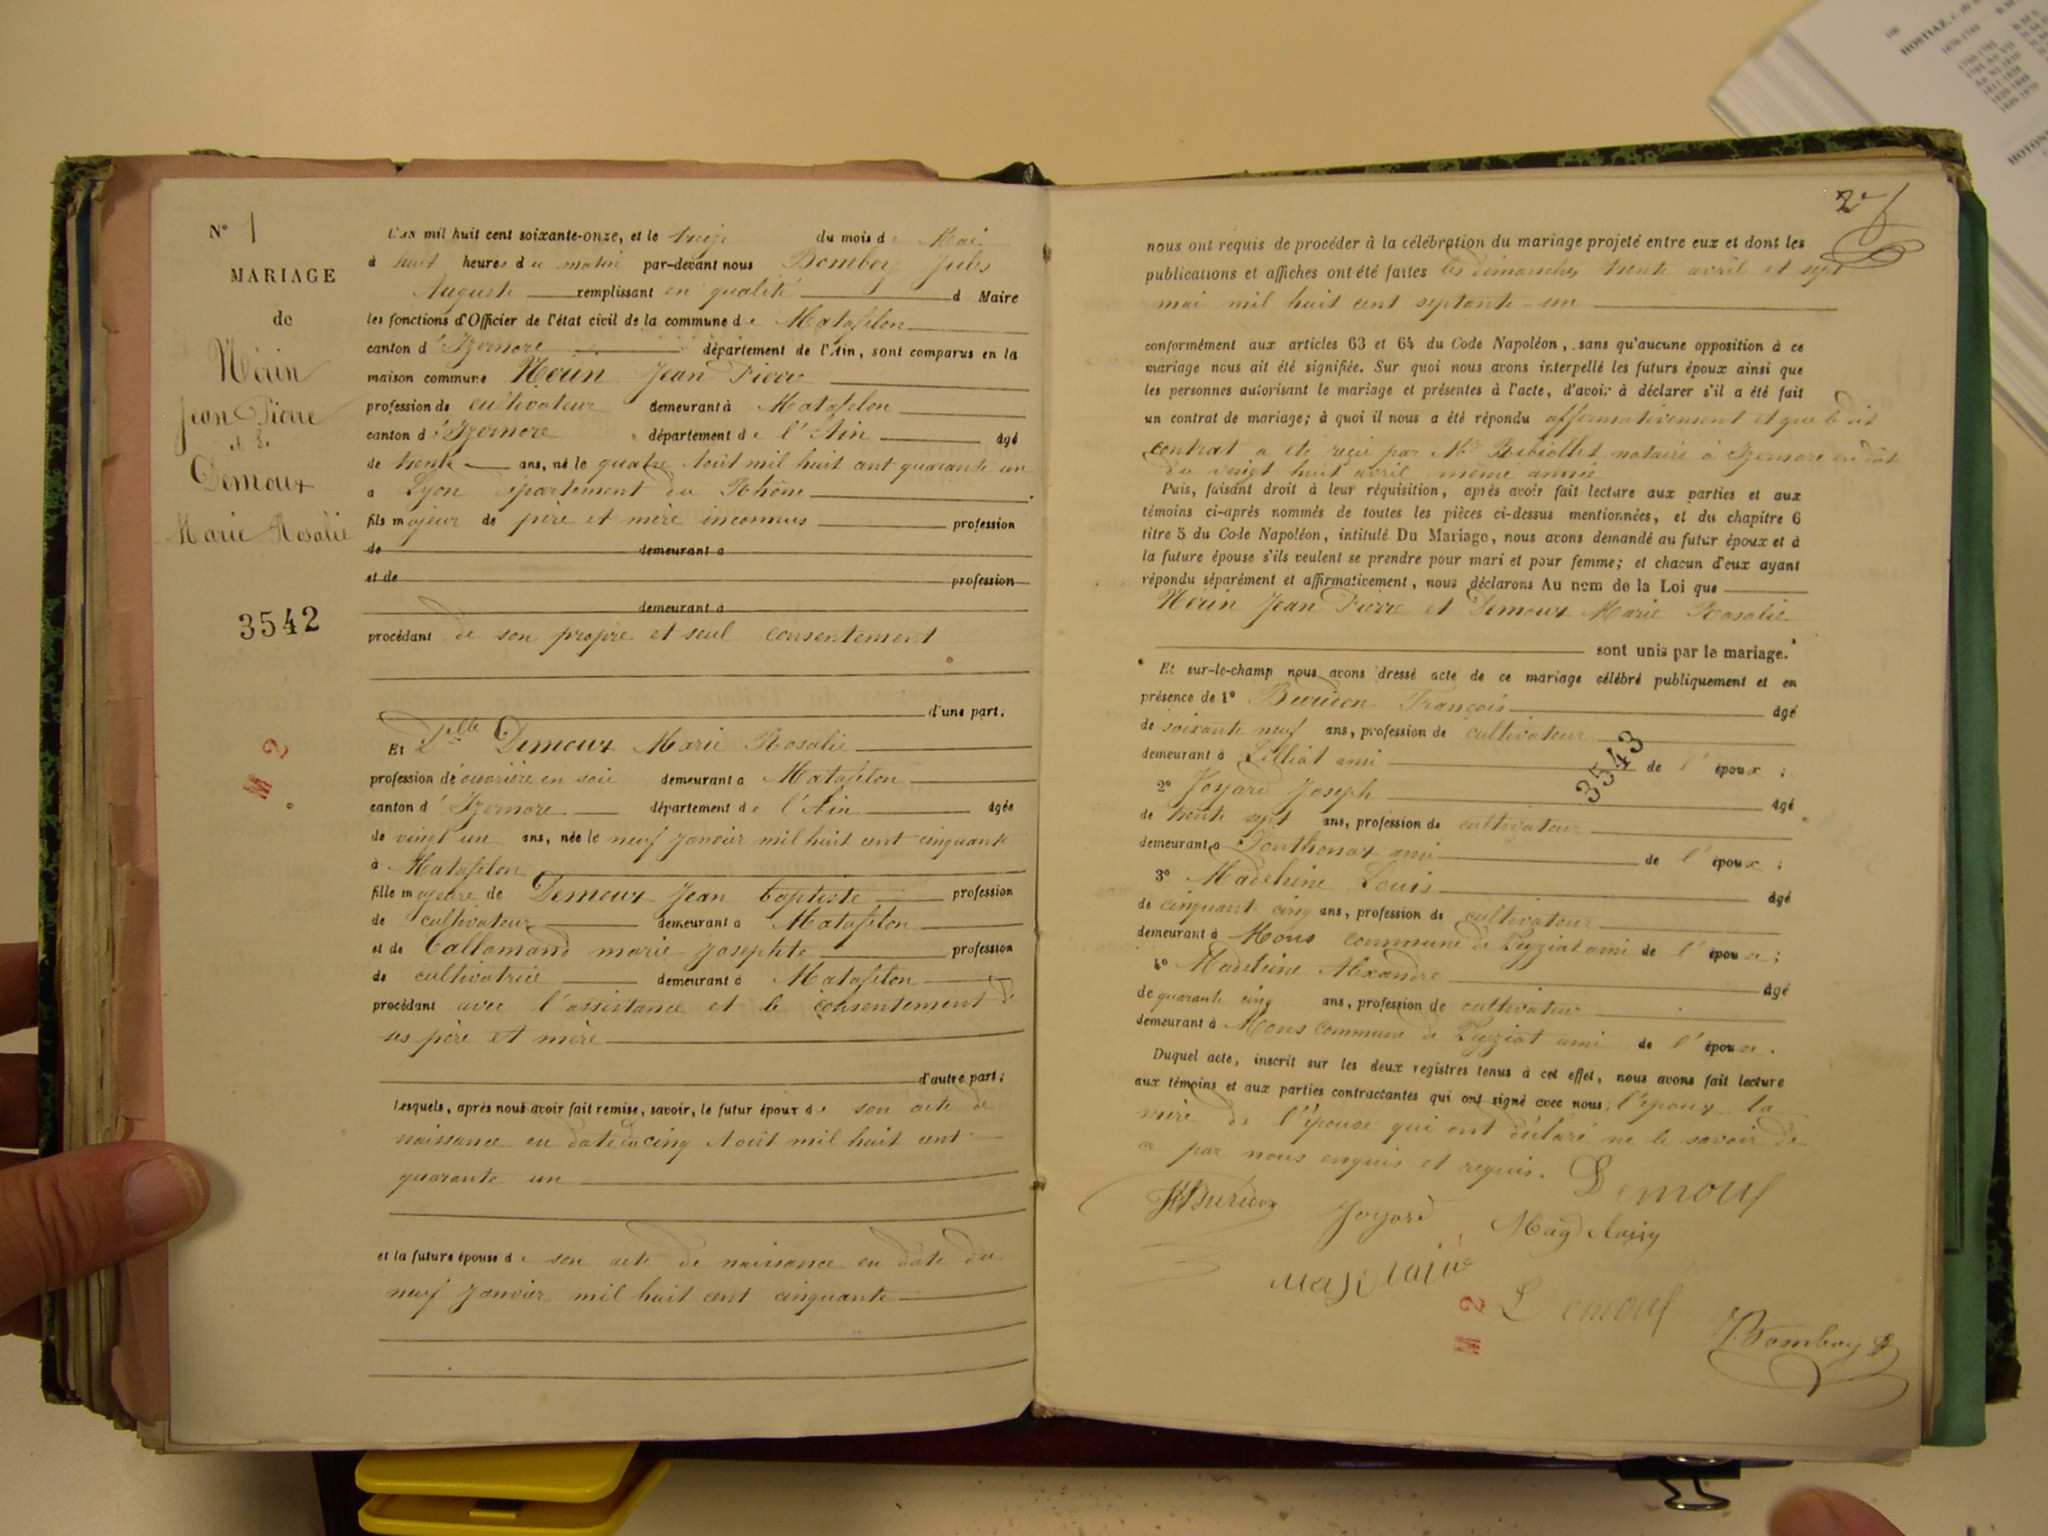 N° 1
MARIAGE
de
Nérin
Jean Pierre
et de
Demoux
Marie Rosalie
3542
M 2
L'AN mil huit cent soixante-onze, et le treize du mois de Mai
à huit heures du matin par-devant nous Bomboy Jules
Auguste remplissant en qualité d Maire
les fonctions d'Officier de l'état civil de la commune de Matafelon
canton d'Izernore département de l'Ain, sont comparus en la
maison commune Nérin Jean Pierre
profession de cultivateur demeurant à Matafelon
canton d'Izernore département de l'Ain âgé
de trente ans, né le quatre Août mil huit cent quarante un
à Lyon département du Rhône
fils majeur de père et mère inconnus profession
de demeurant à
et de profession
demeurant à
procédant de son propre et seul consentement
d'une part;
Et Delle Demoux Marie Rosalie
profession d'ouvrière en soie demeurant à Matafelon
canton d'Izernore département de l'Ain âgée
de vingt un ans, née le neuf janvier mil huit cent cinquante
à Matafelon
fille majeure de Demoux Jean baptiste profession
de cultivateur demeurant à Matafelon
et de Callemand marie josephte profession
de cultivatrice demeurant à Matafelon
procédant avec l'assistance et le consentement de
ses père et mère
d'autre part;
Lesquels, après nous avoir fait remise, savoir, le futur époux de son acte de
naissance en date du cinq Août mil huit cent
quarante un
et la future épouse de son acte de naissance en date du
neuf janvier mil huit cent cinquante
2e
nous ont requis de procéder à la célébration du mariage projeté entre eux et dont les
publications et affiches ont été faites les dimanches trente avril et sept
mai mil huit cent septante-un
conformément aux articles 63 et 64 du Code Napoléon, sans qu'aucune opposition à ce
mariage nous ait été signifiée. Sur quoi nous avons interpellé les futurs époux ainsi que
les personnes autorisant le mariage et présentes à l'acte, d'avoir à déclarer s'il a été fait
un contrat de mariage; à quoi il nous a été répondu affirmativement et que ledit
contrat a été reçu par Me notaire à Izernore en date
du vingt huit avril même année
Puis, faisant droit à leur réquisition, après avoir fait lecture aux parties et aux
témoins ci-après nommés de toutes les pièces ci-dessus mentionnées, et du chapitre 6
titre 5 du Code Napoléon, intitulé Du Mariage, nous avons demandé au futur époux et à
la future épouse s'ils veulent se prendre pour mari et pour femme; et chacun d'eux ayant
répondu séparément et affirmativement, nous déclarons Au nom de la Loi que
Nérin Jean Pierre et Demoux Marie Rosalie
sont unis par le mariage.
Et sur-le-champ nous avons dressé acte de ce mariage célébré publiquement et en
présence de 1° Burdeon François âgé
de soixante neuf ans, profession de cultivateur
demeurant à ami de l'époux;
3543
2° Joyard Joseph âgé
de trente sept ans, profession de cultivateur
demeurant à Thonnax ami de l'époux;
3° Madeleine Louis âgé
de cinquante cinq ans, profession de cultivateur
demeurant à Mons commune de Leyziat ami de l'épouse;
4° Madeleine Alexandre âgé
de quarante cinq ans, profession de cultivateur
demeurant à Mons commune de Leyziat ami de l'épouse.
Duquel acte, inscrit sur les deux registres tenus à cet effet, nous avons fait lecture
aux témoins et aux parties contractantes qui ont signé avec nous; l'époux la
mère de l'épouse qui ont déclaré ne le savoir de
ce par nous enquis et requis. Demoux
Joyard
Demoux
Bomboy
M 2